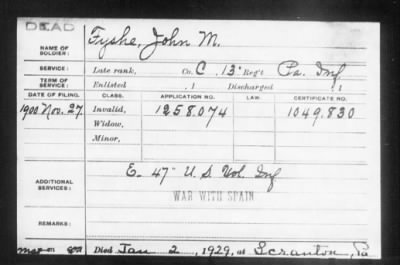 DEAD
NAME OF SOLDIER: Fyshe, John M.
SERVICE: Late rank, Co. C 13" Reg't Pa. Inf
TERM OF SERVICE: Enlisted , 1 Discharged , 1
DATE OF FILING. CLASS. APPLICATION NO. LAW. CERTIFICATE NO.
1900 Nov. 27. Invalid, 1258.074 1049.830
Widow,
Minor,
ADDITIONAL SERVICES: E - 47" U. S Vol. Inf
WAR WITH SPAIN
REMARKS:
Died Jan 2, 1929, at Scranton, Pa